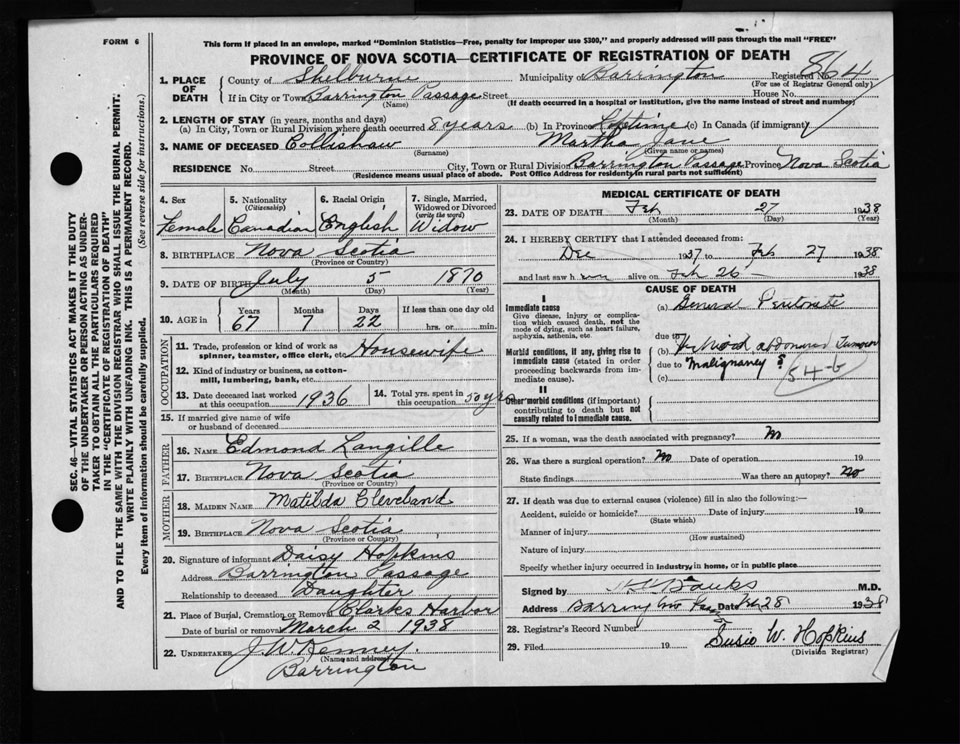 FORM 6
This form if placed in an envelope, marked "Dominion Statistics—Free, penalty for improper use $300," and properly addressed will pass through the mail "FREE"
PROVINCE OF NOVA SCOTIA—CERTIFICATE OF REGISTRATION OF DEATH
1. PLACE OF DEATH
County of Shelburne Municipality of Barrington Registered No. 864
(For use of Registrar General only)
If in City or Town Barrington Passage Street House No.
(Name) (If death occurred in a hospital or institution, give the name instead of street and number)
2. LENGTH OF STAY (in years, months and days)
(a) In City, Town or Rural Division where death occurred 8 years (b) In Province Lifetime (c) In Canada (if immigrant)
3. NAME OF DECEASED Collishaw Martha Jane
(Surname) (Given name or names)
RESIDENCE No. Street City, Town or Rural Division Barrington Passage Province Nova Scotia
(Residence means usual place of abode. Post Office Address for residents in rural parts not sufficient)
4. Sex
Female
5. Nationality
(Citizenship)
Canadian
6. Racial Origin
English
7. Single, Married, Widowed or Divorced
(write the word)
Widow
8. BIRTHPLACE Nova Scotia
(Province or Country)
9. DATE OF BIRTH July 5 1870
(Month) (Day) (Year)
10. AGE in
Years Months Days If less than one day old
67 7 22 hrs. or min.
OCCUPATION
11. Trade, profession or kind of work as spinner, teamster, office clerk, etc. Housewife
12. Kind of industry or business, as cotton-mill, lumbering, bank, etc.
13. Date deceased last worked at this occupation 1936
14. Total yrs. spent in this occupation 50 yrs
15. If married give name of wife or husband of deceased
FATHER
16. NAME Edmond Langille
17. BIRTHPLACE Nova Scotia
(Province or Country)
MOTHER
18. MAIDEN NAME Matilda Cleveland
19. BIRTHPLACE Nova Scotia
(Province or Country)
20. Signature of informant Daisy Hopkins
Address Barrington Passage
Relationship to deceased Daughter
21. Place of Burial, Cremation or Removal Clarks Harbor
Date of burial or removal March 2 1938
22. UNDERTAKER J. W. Kenney.
(Name and address)
Barrington
MEDICAL CERTIFICATE OF DEATH
23. DATE OF DEATH Feb 27 1938
(Month) (Day) (Year)
24. I HEREBY CERTIFY that I attended deceased from:
Dec 1937 to Feb 27 1938
and last saw her alive on Feb 26 1938
CAUSE OF DEATH
I
Immediate cause
Give disease, injury or complication which caused death, not the mode of dying, such as heart failure, asphyxia, asthenia, etc.
(a) General
due to
Morbid conditions, if any, giving rise to immediate cause (stated in order proceeding backwards from immediate cause).
(b) abdominal Tumour
due to "Malignancy"?
(c)
54-6
II
Other morbid conditions (if important) contributing to death but not causally related to immediate cause.
25. If a woman, was the death associated with pregnancy? No
26. Was there a surgical operation? No Date of operation 19
State findings Was there an autopsy? No
27. If death was due to external causes (violence) fill in also the following:—
Accident, suicide or homicide? Date of injury 19
(State which)
Manner of injury
(How sustained)
Nature of injury
Specify whether injury occurred in industry, in home, or in public place
Signed by Banks M.D.
Address Barrington Pass Date Feb 28 1938
28. Registrar's Record Number
29. Filed 19 Susie W. Hopkins
(Division Registrar)
SEC. 46—VITAL STATISTICS ACT MAKES IT THE DUTY
OF THE UNDERTAKER OR PERSON ACTING AS UNDER-
TAKER TO OBTAIN ALL THE PARTICULARS REQUIRED
IN THE "CERTIFICATE OF REGISTRATION OF DEATH"
AND TO FILE THE SAME WITH THE DIVISION REGISTRAR WHO SHALL ISSUE THE BURIAL PERMIT.
WRITE PLAINLY WITH UNFADING INK. THIS IS A PERMANENT RECORD.
Every item of information should be carefully supplied. (See reverse side for instructions.)